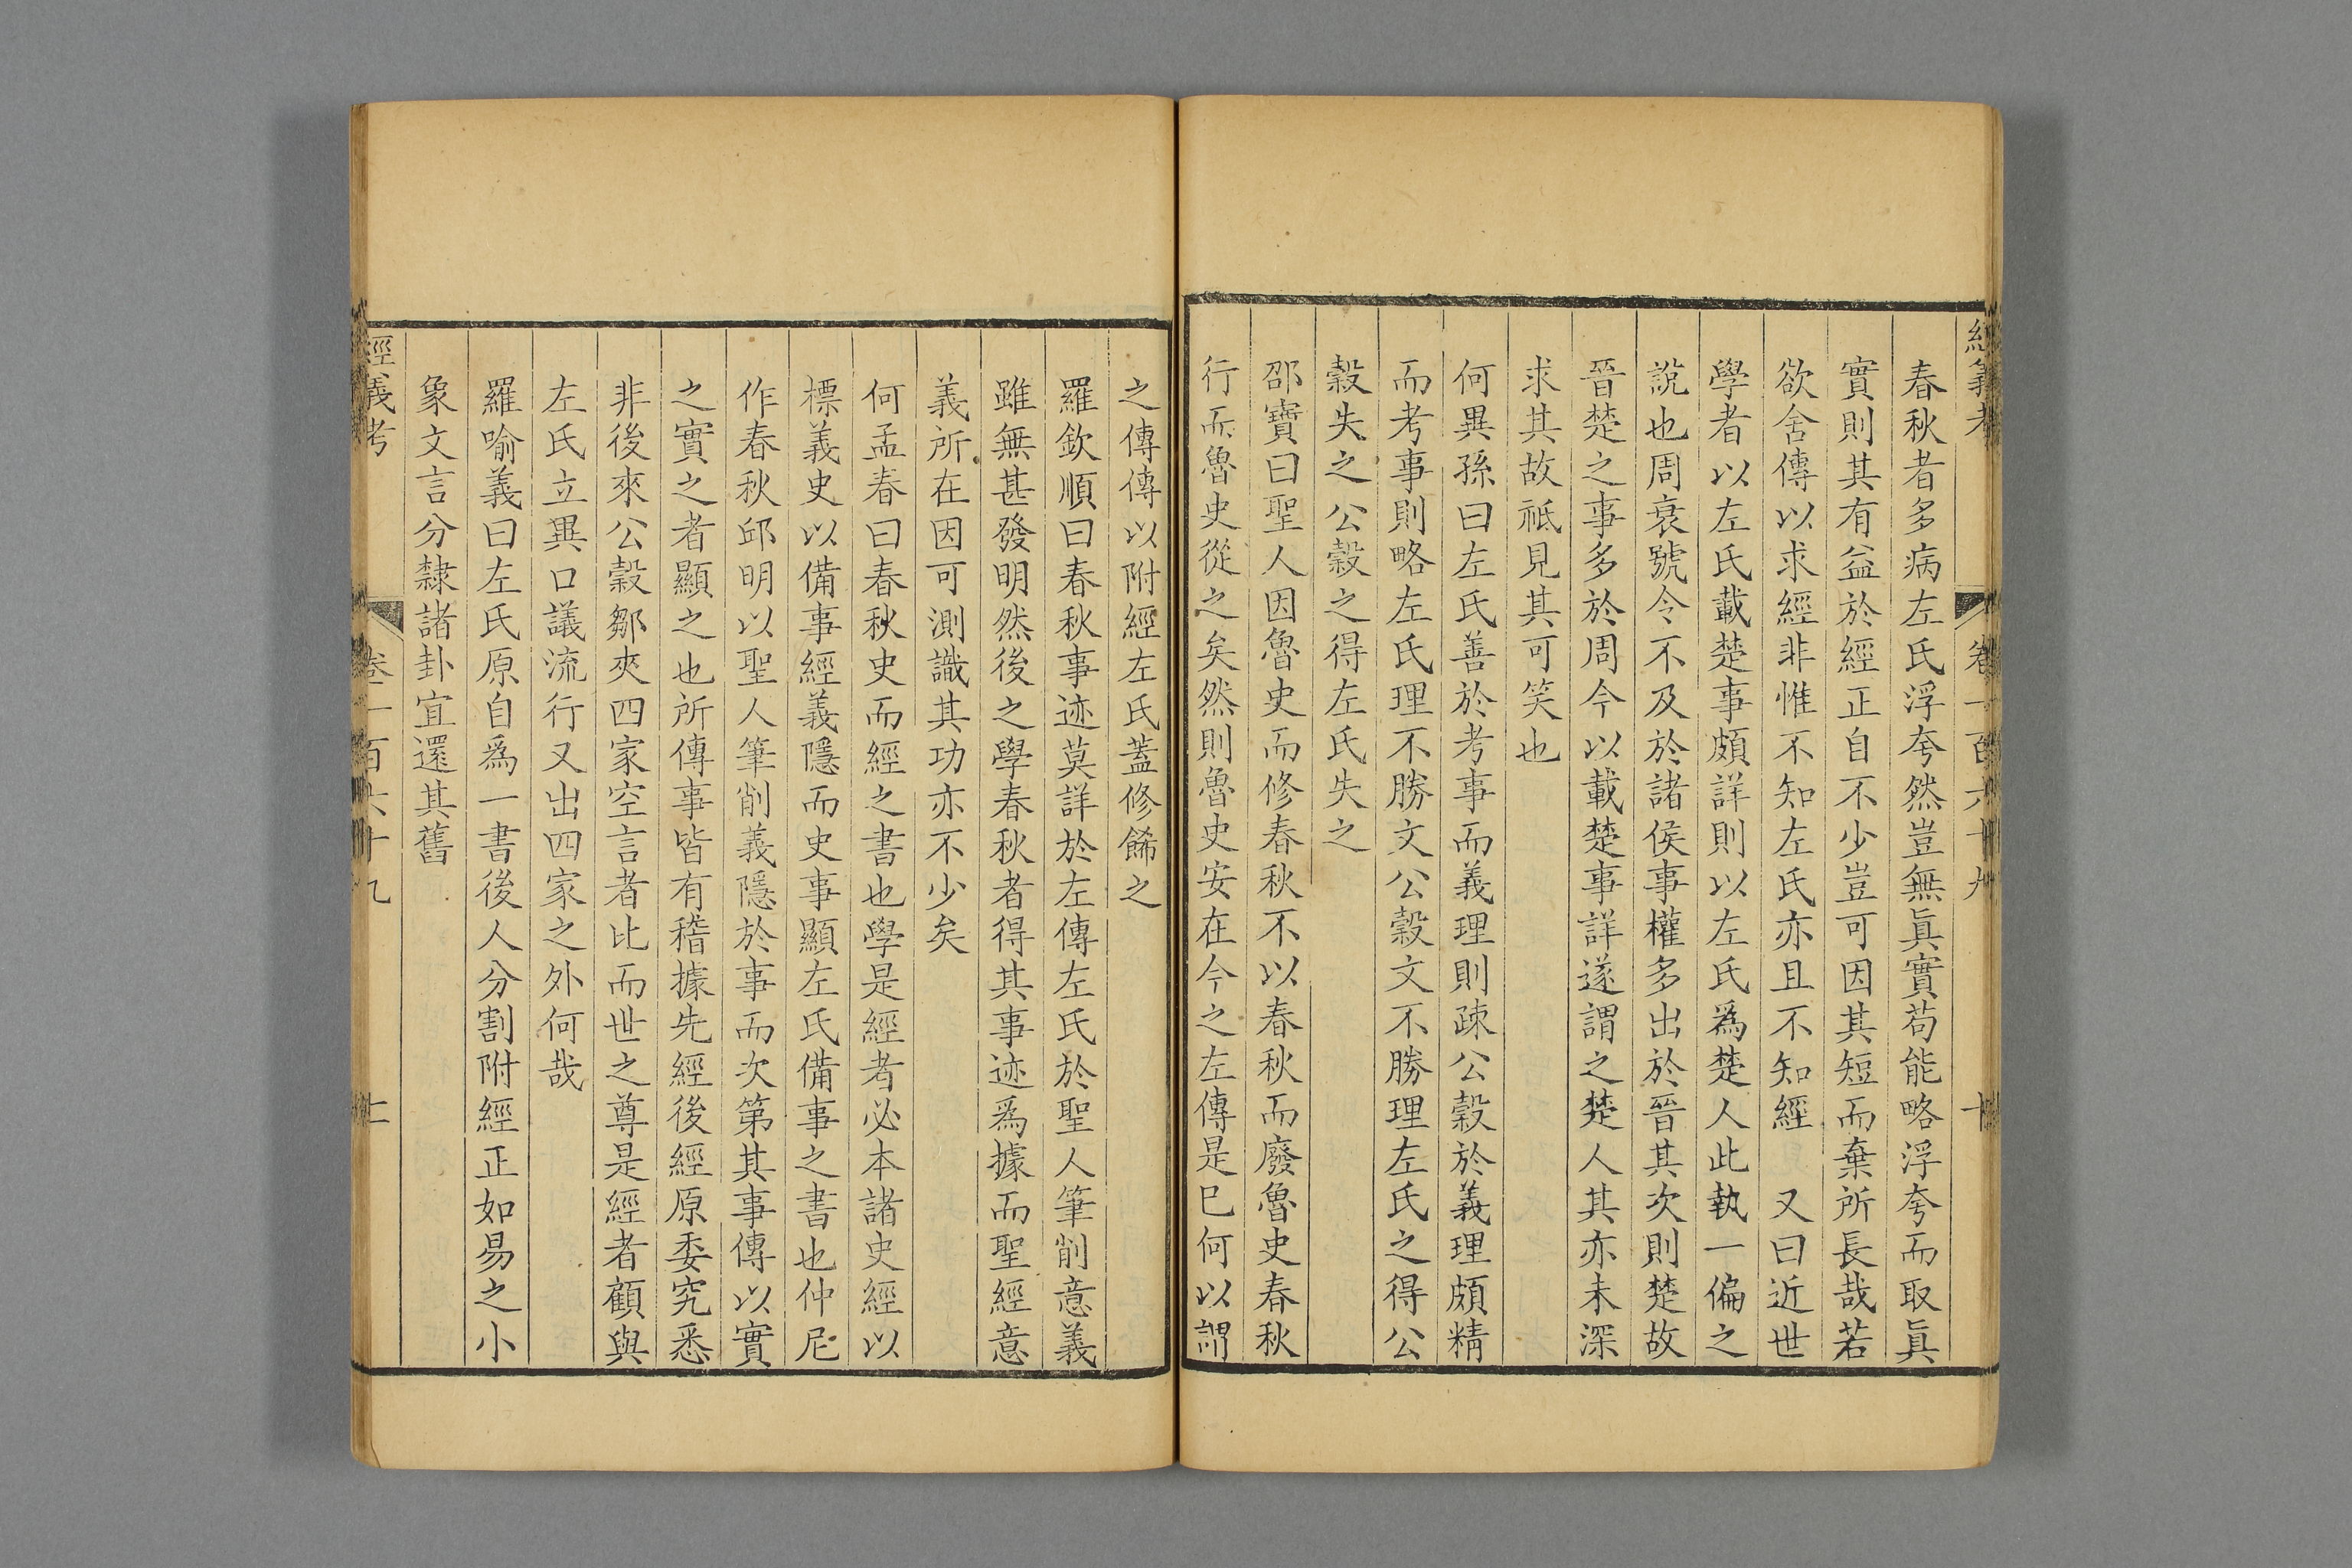 經義考 卷一百六十九 十
春秋者多病左氏浮夸然豈無眞實苟能略浮夸而取眞
實則其有益於經正自不少豈可因其短而棄所長哉若
欲舍傳以求經非惟不知左氏亦且不知經 又曰近世
學者以左氏載楚事頗詳則以左氏爲楚人此執一偏之
說也周衰號令不及於諸侯事權多出於晉其次則楚故
晉楚之事多於周今以載楚事詳遂謂之楚人其亦未深
求其故祗見其可笑也
何異孫曰左氏善於考事而義理則疎公穀於義理頗精
而考事則略左氏理不勝文公穀文不勝理左氏之得公
穀失之公穀之得左氏失之
邵寶曰聖人因魯史而修春秋不以春秋而廢魯史春秋
行而魯史從之矣然則魯史安在今之左傳是已何以謂
之傳傳以附經左氏蓋修餙之
羅欽順曰春秋事迹莫詳於左傳左氏於聖人筆削意義
雖無甚發明然後之學春秋者得其事迹爲據而聖經意
義所在因可測識其功亦不少矣
何孟春曰春秋史而經之書也學是經者必本諸史經以
標義史以備事經義隱而史事顯左氏備事之書也仲尼
作春秋邱明以聖人筆削義隱於事而次第其事傳以實
之實之者顯之也所傳事皆有稽據先經後經原委究悉
非後來公穀鄒夾四家空言者比而世之尊是經者顧與
左氏立異口議流行又出四家之外何哉
羅喻義曰左氏原自爲一書後人分割附經正如易之小
象文言分隸諸卦宜還其舊
經義考 卷一百六十九